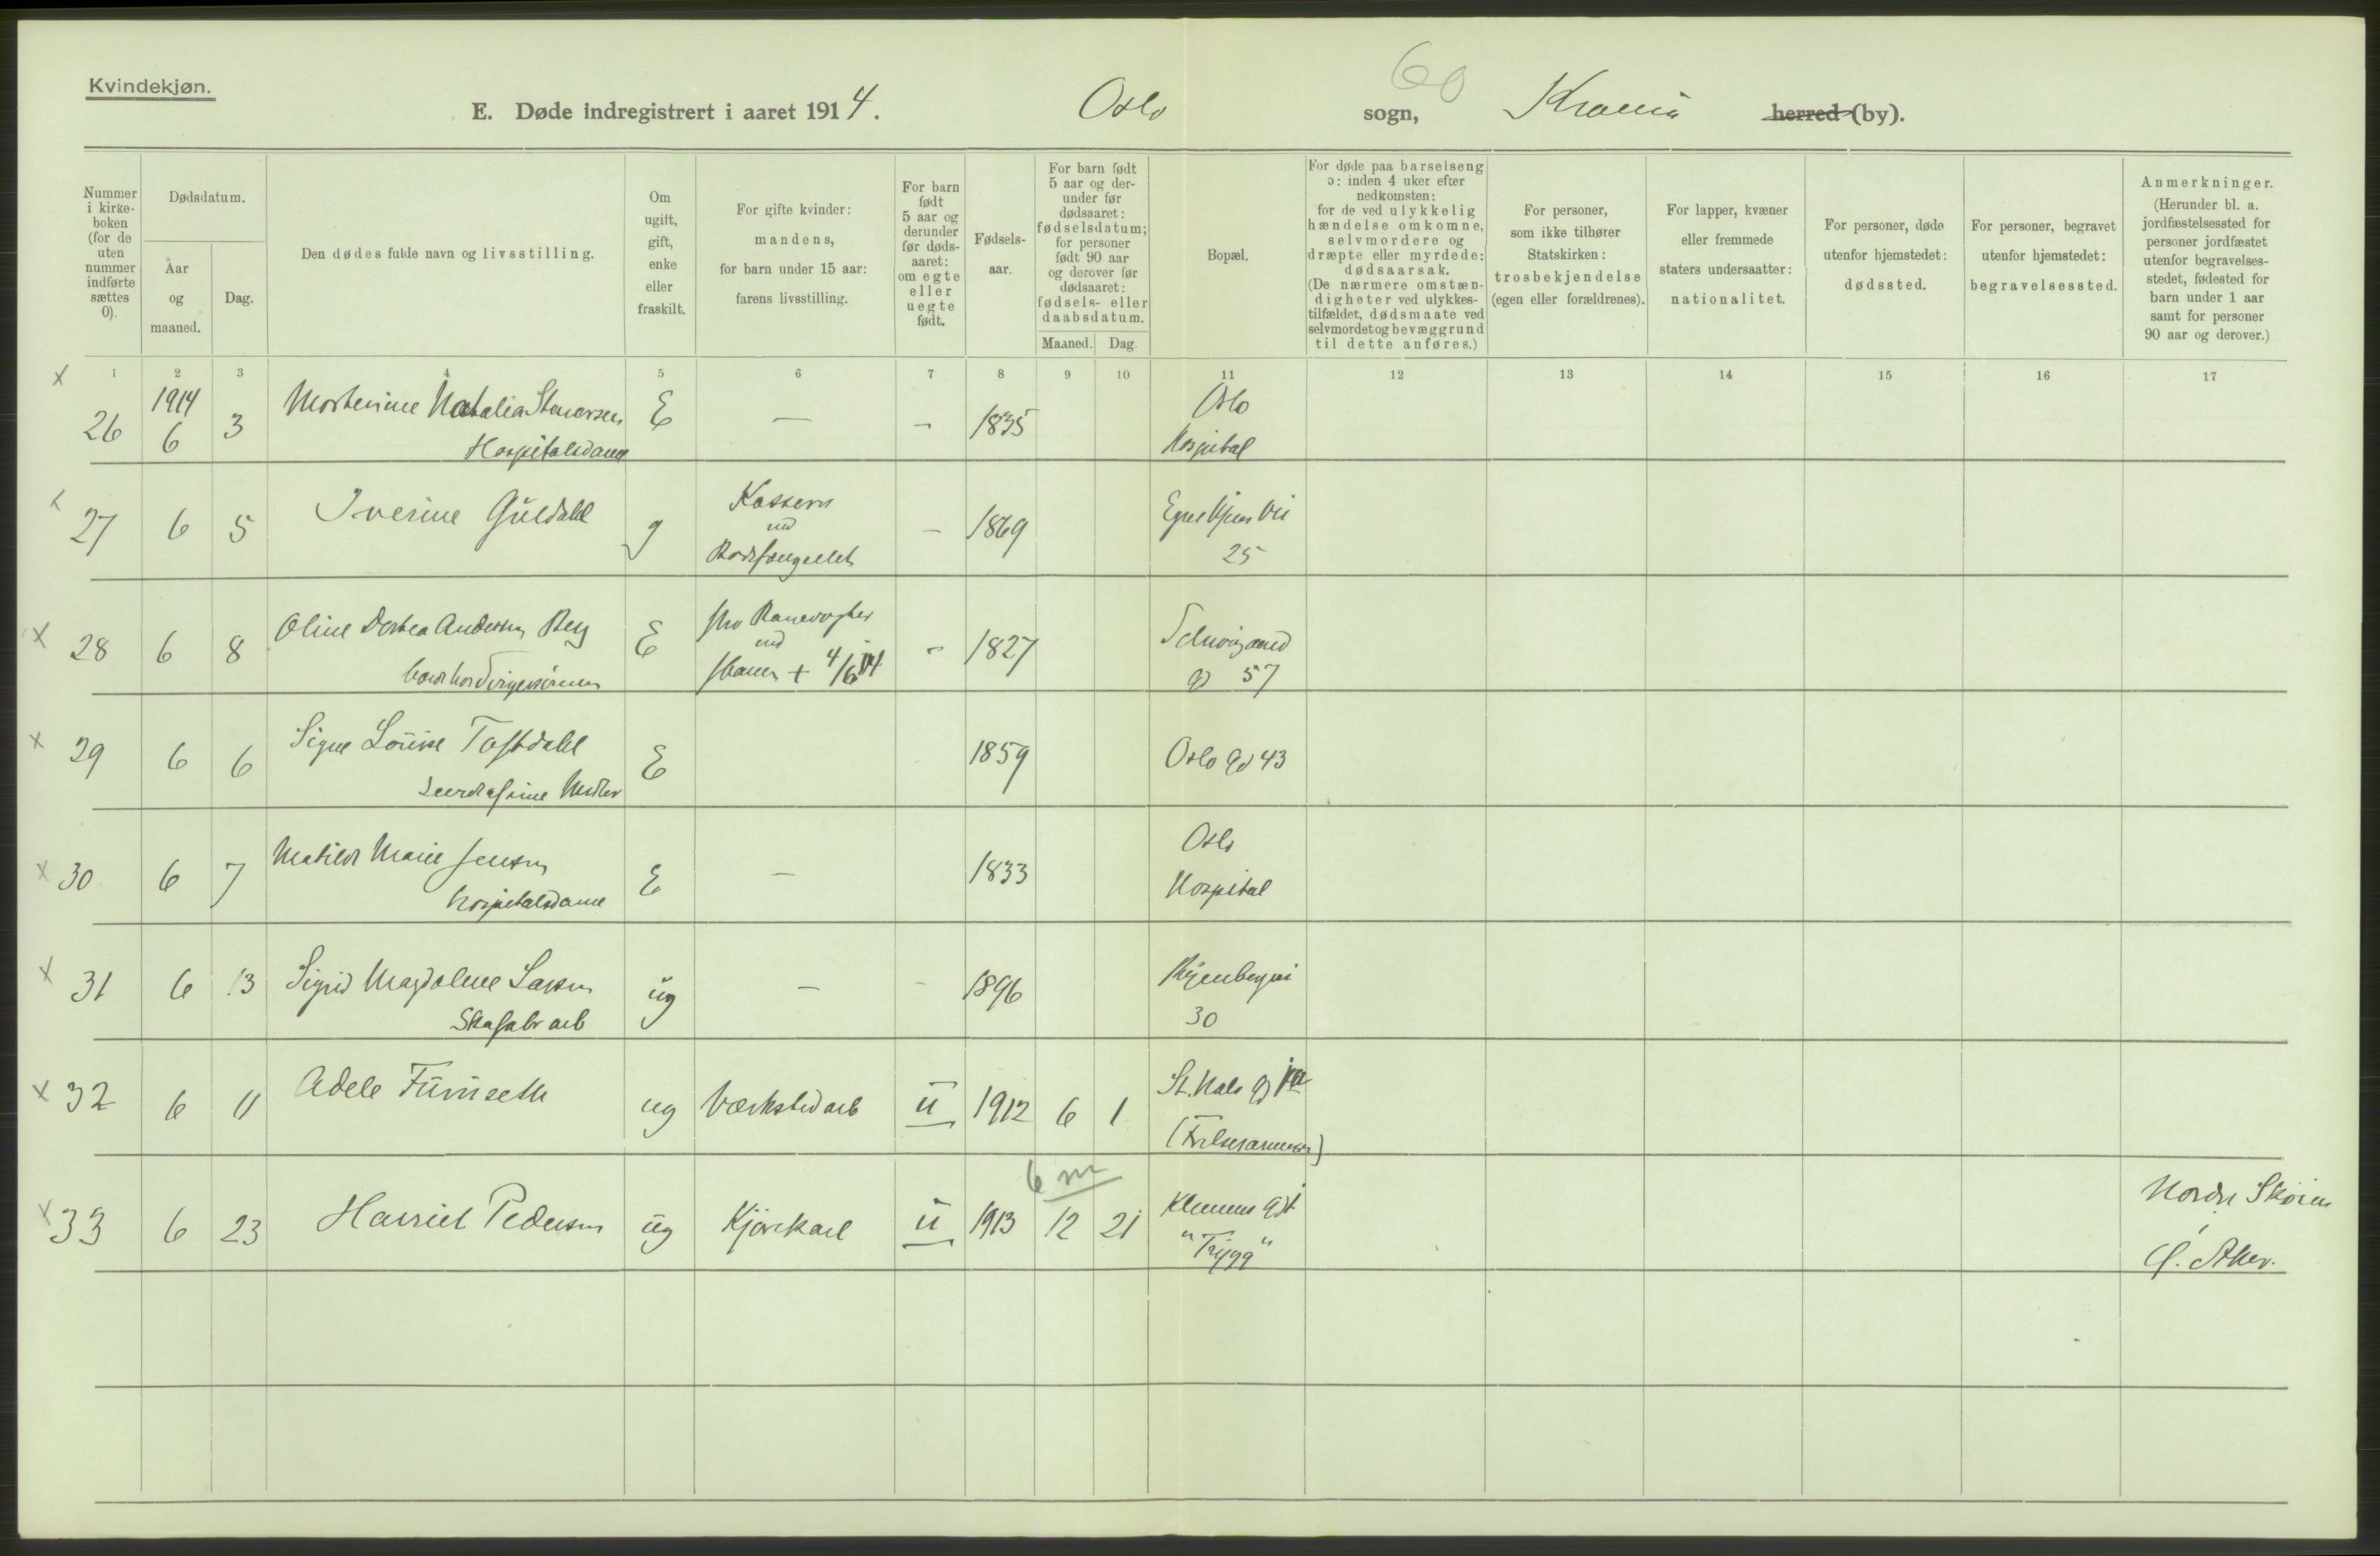 Kvindekjøn.
60
E. Døde indregistrert i aaret 1914. Oslo sogn, Krania herred (by).
Nummer i kirke- boken (for de uten nummer indførte sættes 0).
Dødsdatum.
Aar og maaned.
Dag.
Den dødes fulde navn og livsstilling.
Om ugift, gift, enke eller fraskilt.
For gifte kvinder: mandens, for barn under 15 aar: farens livsstilling.
For barn født 5 aar og derunder før døds- aaret: om egte eller uegte født.
Fødsels- aar.
For barn født 5 aar og der- under før dødsaaret: fødselsdatum; for personer født 90 aar og derover før dødsaaret: fødsels- eller daabsdatum.
Maaned. Dag.
Bopæl.
For døde paa barselseng ɔ: inden 4 uker efter nedkomsten: for de ved ulykkelig hændelse omkomne, selvmordere og dræpte eller myrdede: dødsaarsak. (De nærmere omstæn- digheter ved ulykkes- tilfældet, dødsmaate ved selvmordet og bevæggrund til dette anføres.)
For personer, som ikke tilhører Statskirken: trosbekjendelse (egen eller forældrenes).
For lapper, kvæner eller fremmede staters undersaatter: nationalitet.
For personer, døde utenfor hjemstedet: dødssted.
For personer, begravet utenfor hjemstedet: begravelsessted.
Anmerkninger. (Herunder bl. a. jordfæstelsessted for personer jordfæstet utenfor begravelses- stedet, fødested for barn under 1 aar samt for personer 90 aar og derover.)
1 2 3 4 5 6 7 8 9 10 11 12 13 14 15 16 17
x 26 1914 6 3 Mortenine Natalia E — — 1835 Oslo
Hospitalsdame Hospital
27 6 5 Iverine Guldahl g — 1869
25
x 28 6 8 Oline Dortea Andersen Berg E - 1827
+ 4/6 14 gd 57
x 29 6 6 Signe Louise Toftdahl E 1859 Oslo gd 43
x 30 6 7 Matilde Marie Jensen E — 1833 Oslo
hospitalsdame Hospital
x 31 6 13 Sigrid Magdalene Larsen ug — - 1896
Skofabr arb 30
x 32 6 11 Adele Furuseth ug Værksted arb u 1912 6 1 St. Hals gd
(Frelsesarmeen)
6 m
x 33 6 23 Harriet Pedersen ug Kjørekarl u 1913 12 21 Klemens gdt Nordre Skøien
"Trygg" Ø. Aker.